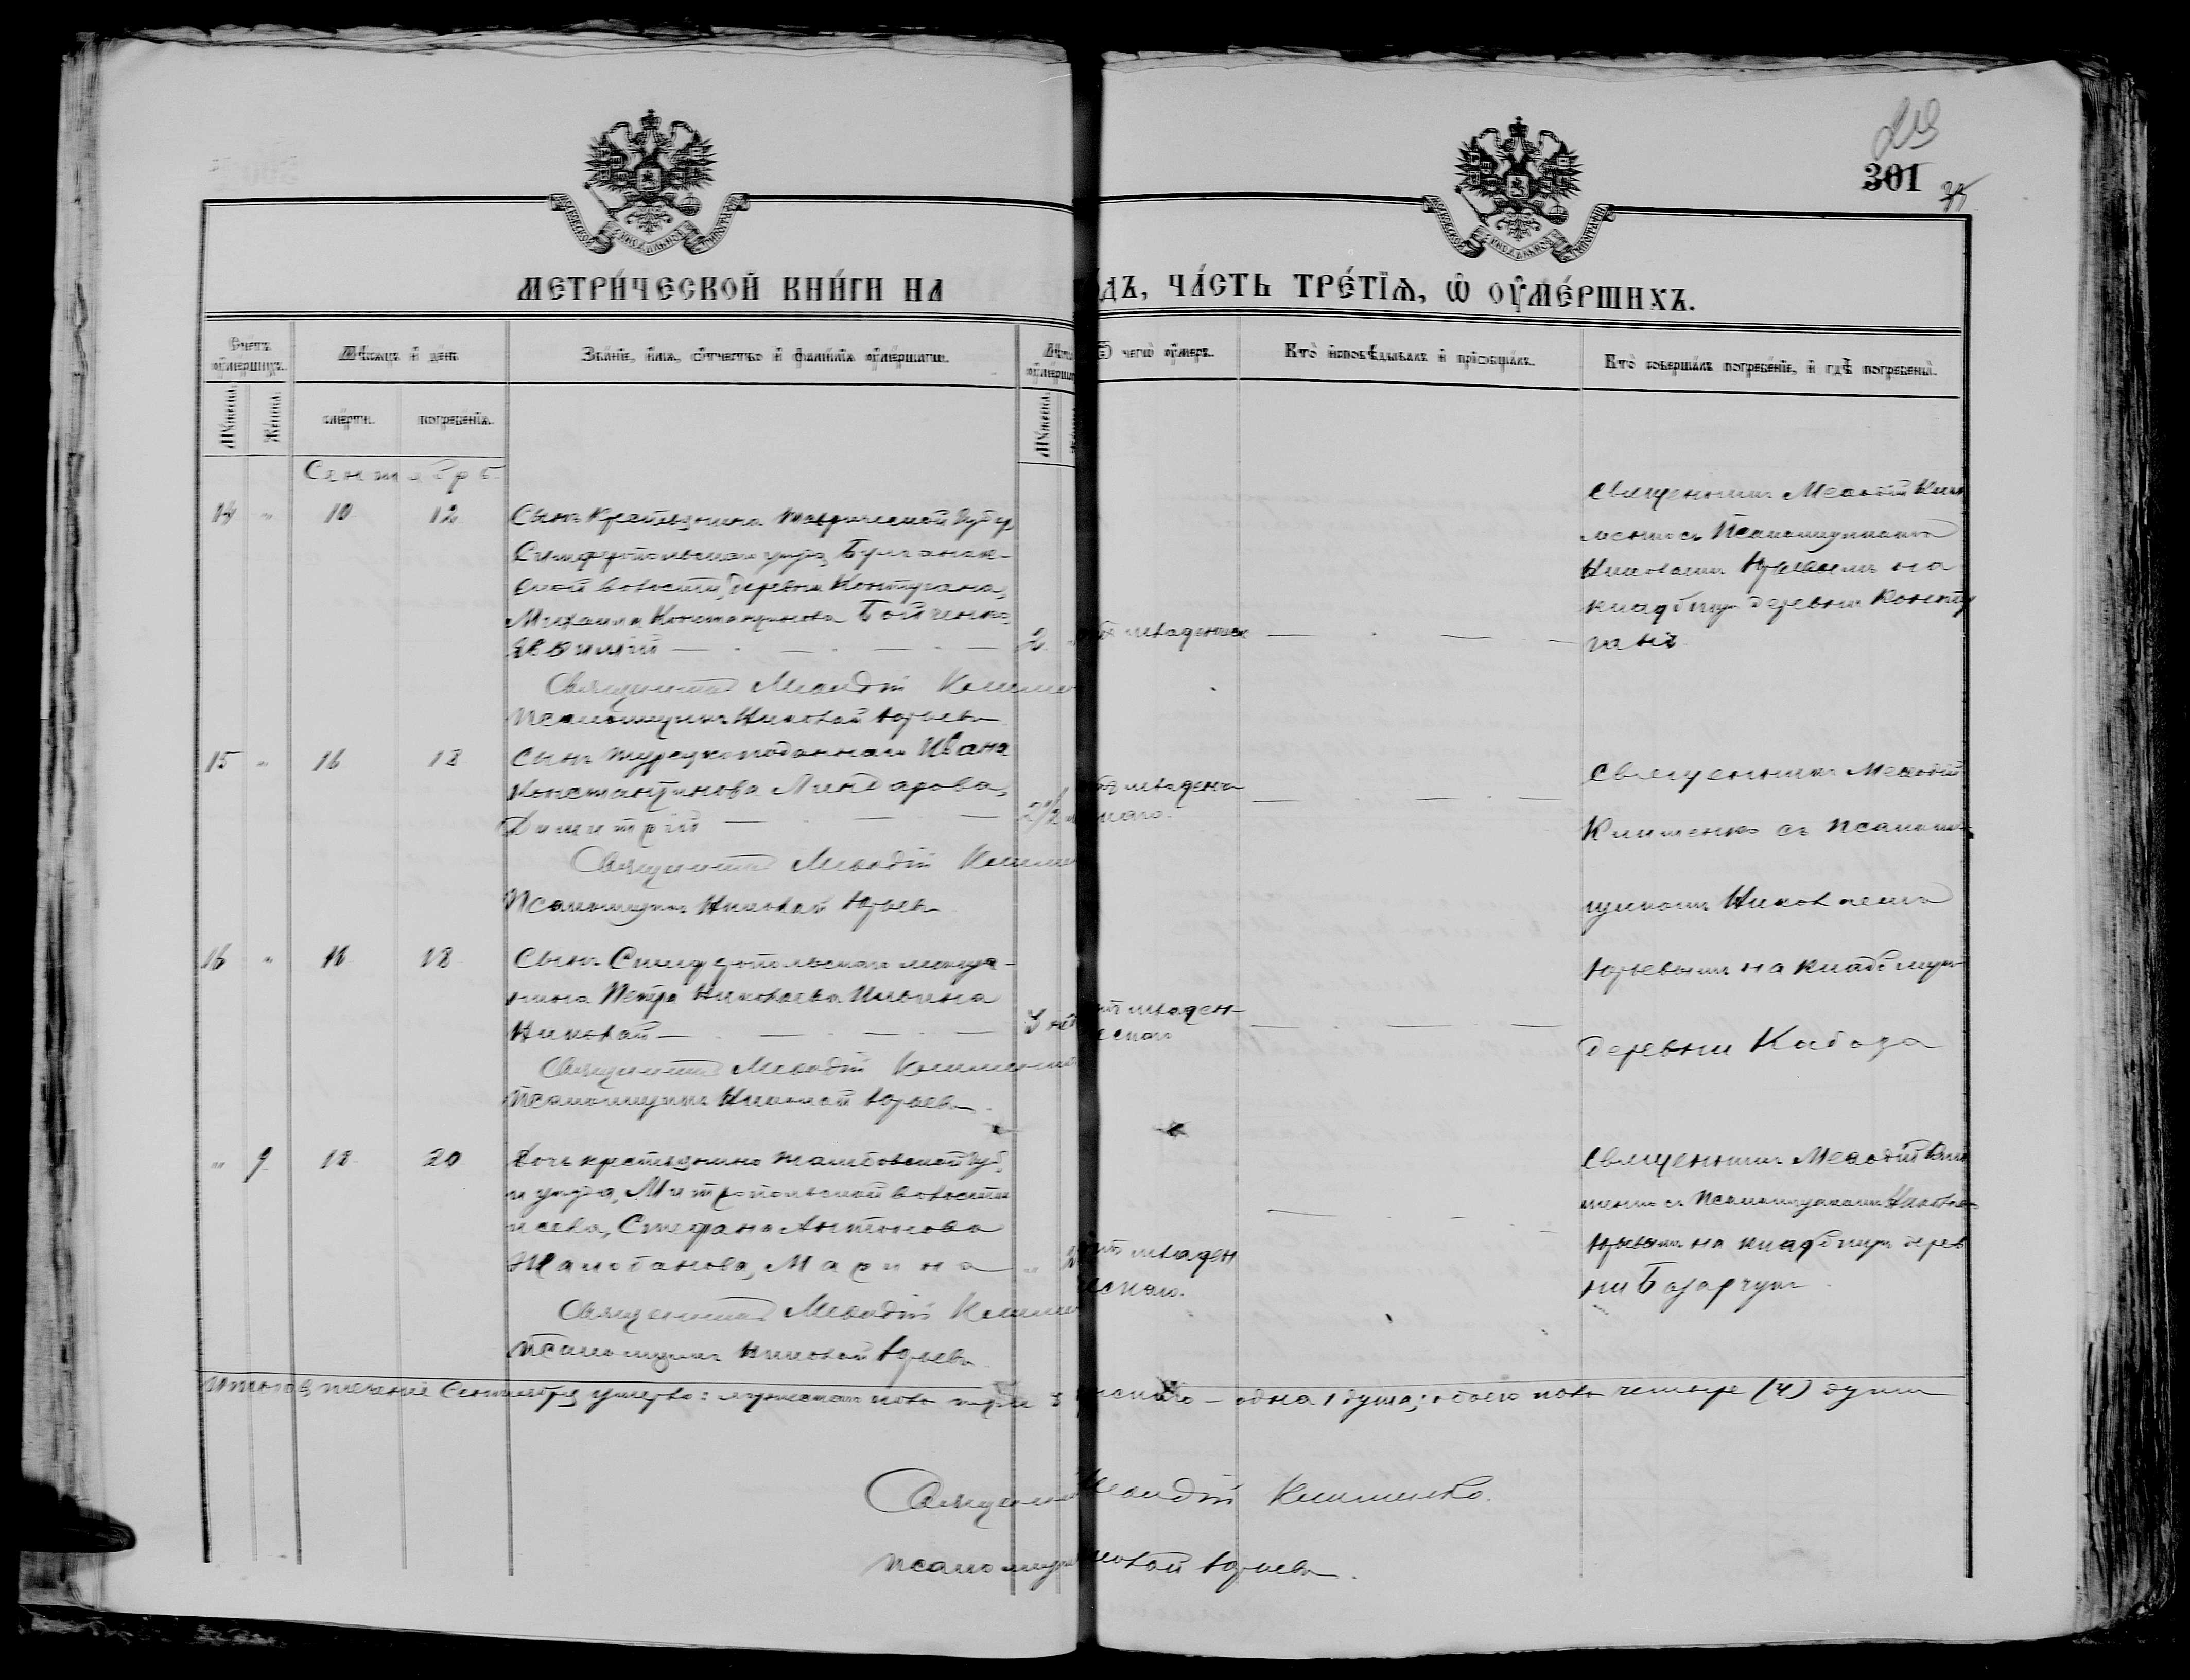 301
МЕТРИ́ЧЕСКОЙ КНИ́ГИ НА
ДЪ, ЧА́СТЬ ТРЕ́ТІѦ, Ѡ҆ ОУ҆МЕ́РШИХЪ.
Счетъ оумершихъ.
Мѣсяцъ и день
Званіе, имя, отчество и фамилія оумершагѡ.
Лѣта
Ѿ чегѡ оумеръ.
Кто исповѣдывалъ и пріобщалъ.
Кто совершалъ погребеніе, и гдѣ погребены.
Мужеска.
Женска.
смерти.
погребенія.
Мужеска.
Сентябрь
14 " 10 12
Сынъ крестьянина Таврической Губер
Симферопольскаго уѣзда, Булганак-
ской волости, деревни Контугана,
Михаила Константинова Бойченко
2
младенческ
Священникъ Меѳодій Клим
Псаломщикъ Николай Юрьевъ
Священникъ Меѳодій Кли
менко съ Псаломщикомъ
Николаемъ Юрьевымъ на
кладбищѣ деревни Конту
ганъ
15 " 16 18
Сынъ турецкоподданнаго Ивана
Константинова Линдарова,
Димитрій
2 1/2
младенч
Священникъ Меѳодій Климе
Псаломщикъ Николай Юрьевъ
Священникъ Меѳодій
Клименко съ псалом-
щикомъ Николаемъ
Юрьевымъ на кладбищѣ
деревни Кабаза
16 " 18
Сынъ Симферопольскаго мѣща-
нина Петра Николаева Ильина
Николай
младен-
ческаго
Священникъ Меѳодій Клименко
Псаломщикъ Николай Юрьевъ
" 9 18 20
Дочь крестьянина Тамбовской Губ.
и уѣзда, Митропольской волости
и села, Стефана Антонова
Жалобанова, Марина
младен
ческаго.
Священникъ Меѳодій Климе
Псаломщикъ Николай Юрьевъ
Священникъ Меѳодій Кли
менко съ Псаломщикомъ Николаемъ
Юрьевымъ на кладбищѣ дерев
ни Базарчукъ
Итого въ теченіе Сентября умерло: мужескаго пола три 3 женскаго - одна 1 душа; обоего пола четыре (4) души
Священникъ Меѳодій Клименко.
псаломщикъ Николай Юрьевъ.